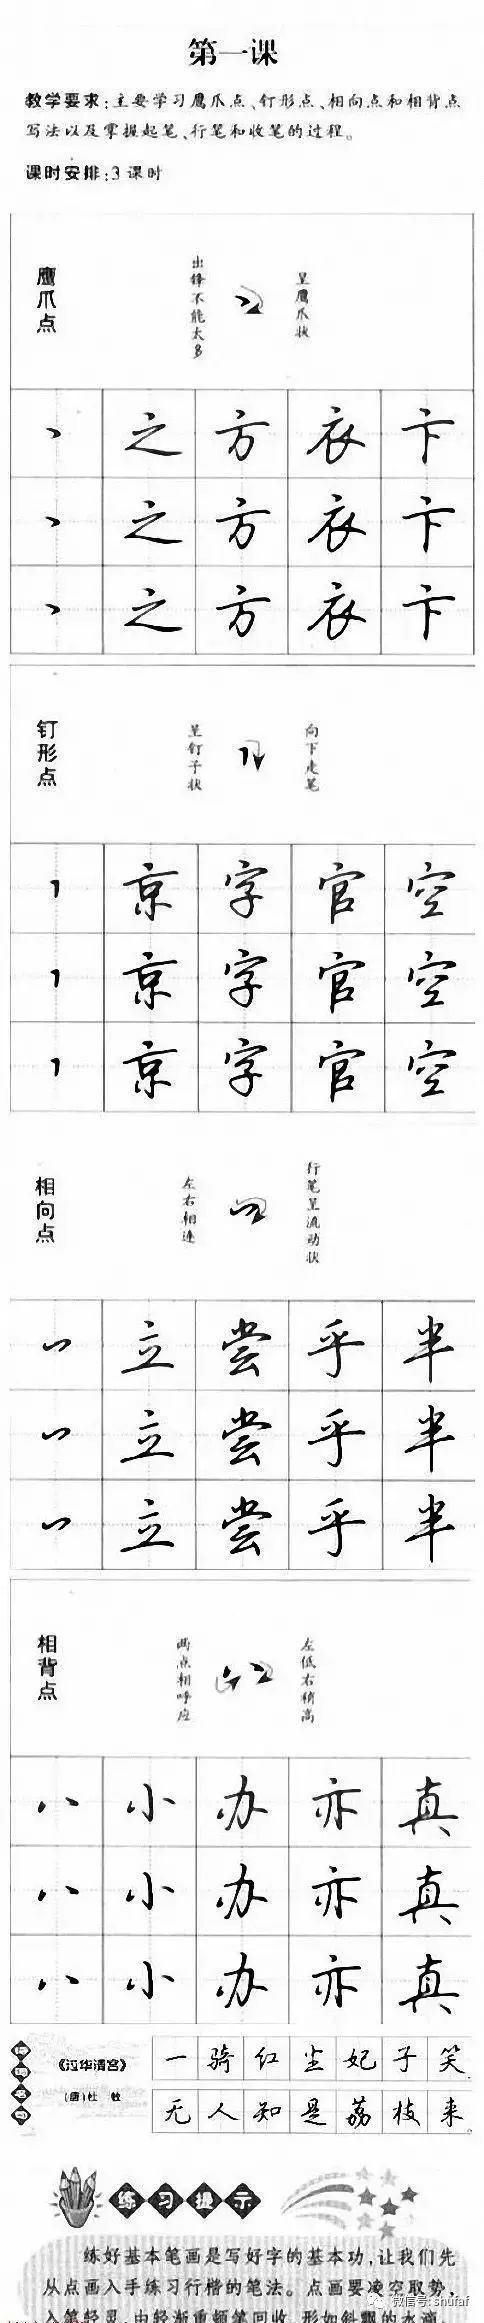 第一课
教学要求:主要学习鹰爪点、钉形点、相向点和相背点
写法以及掌握起笔、行笔和收笔的过程。
课时安排:3课时
鹰爪点
出锋不能太多
呈鹰爪状
丶 之 方 衣 卞
丶 之 方 衣 卞
丶 之 方 衣 卞
钉形点
呈钉子状
向下走笔
京 字 官 空
京 字 官 空
京 字 官 空
相向点
左右相连
行笔呈流动状
立 尝 乎 半
立 尝 乎 半
立 尝 乎 半
相背点
两点相呼应
左低右稍高
八 小 办 亦 真
八 小 办 亦 真
八 小 办 亦 真
《过华清宫》
(唐)杜 牧
一骑红尘妃子笑
无人知是荔枝来
练习提示
练好基本笔画是写好字的基本功,让我们先
从点画入手练习行楷的笔法。点画要凌空取势,
入笔轻灵,由轻渐重顿笔回收,形如斜飘的水滴
微信号: shufaf